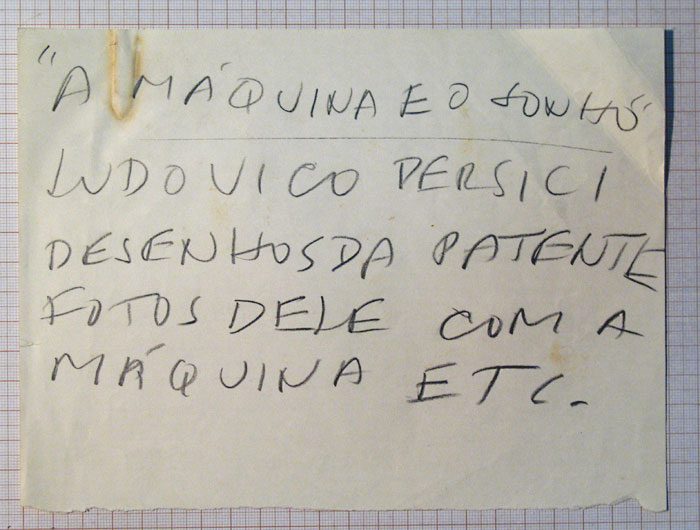 "A MÁQUINA E O SONHO"
LUDOVICO PERSICI
DESENHOS DA PATENTE
FOTOS DELE COM A
MÁQUINA ETC.